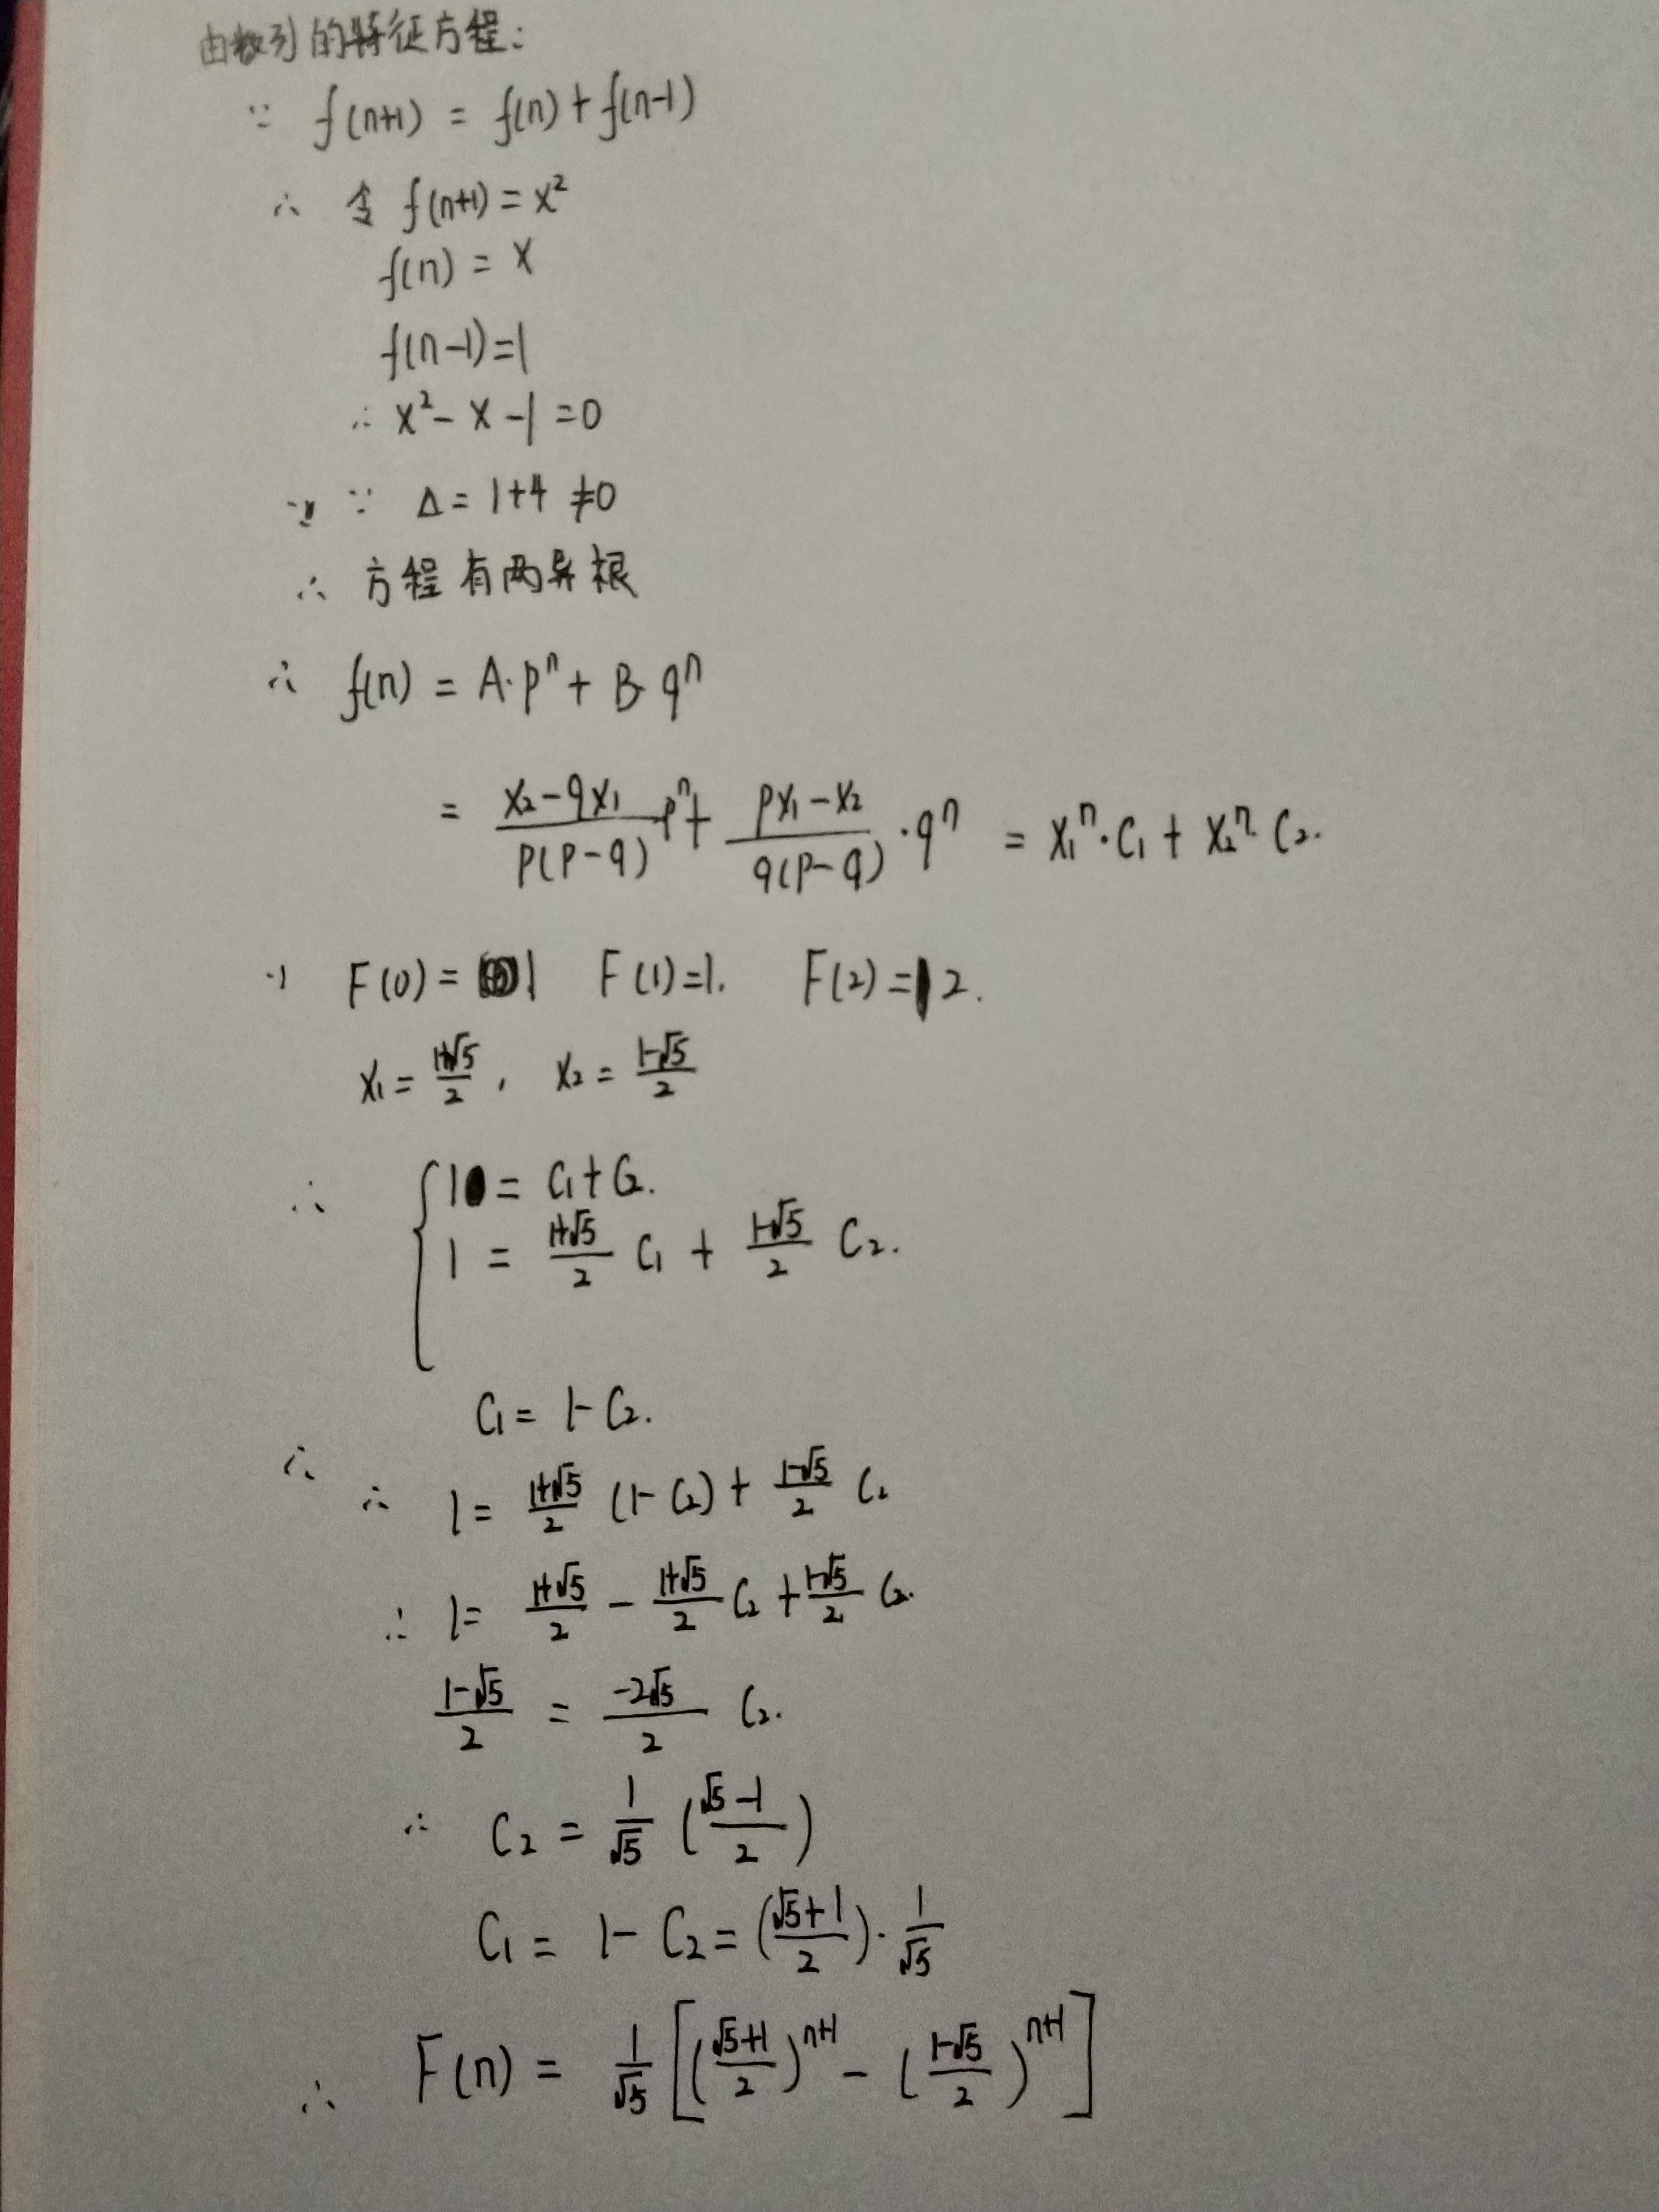 由数列的特征方程:
∵ f(n+1) = f(n) + f(n-1)
∴ 令 f(n+1) = x²
f(n) = x
f(n-1)=1
∴ x² - x - 1 = 0
∵ Δ = 1+4 ≠0
∴ 方程有两异根
∴ f(n) = A·pⁿ + B·qⁿ
= (x₂-qx₁)/(p(p-q)) ·pⁿ + (px₁-x₂)/(q(p-q)) ·qⁿ = x₁ⁿ·C₁ + x₂ⁿ·C₂.
F(0) = 1 F(1)=1. F(2)=2.
x₁ = (1+√5)/2 , x₂ = (1-√5)/2
∴ { 1 = C₁+C₂.
1 = (1+√5)/2 C₁ + (1-√5)/2 C₂.
C₁ = 1-C₂.
∴ ∴ 1 = (1+√5)/2 (1-C₂) + (1-√5)/2 C₂
∴ 1 = (1+√5)/2 - (1+√5)/2 C₂ + (1-√5)/2 C₂.
(1-√5)/2 = (-2√5)/2 C₂.
∴ C₂ = 1/√5 ((√5-1)/2)
C₁ = 1-C₂ = ((√5+1)/2)·1/√5
∴ F(n) = 1/√5 [((√5+1)/2)ⁿ⁺¹ - ((1-√5)/2)ⁿ⁺¹]